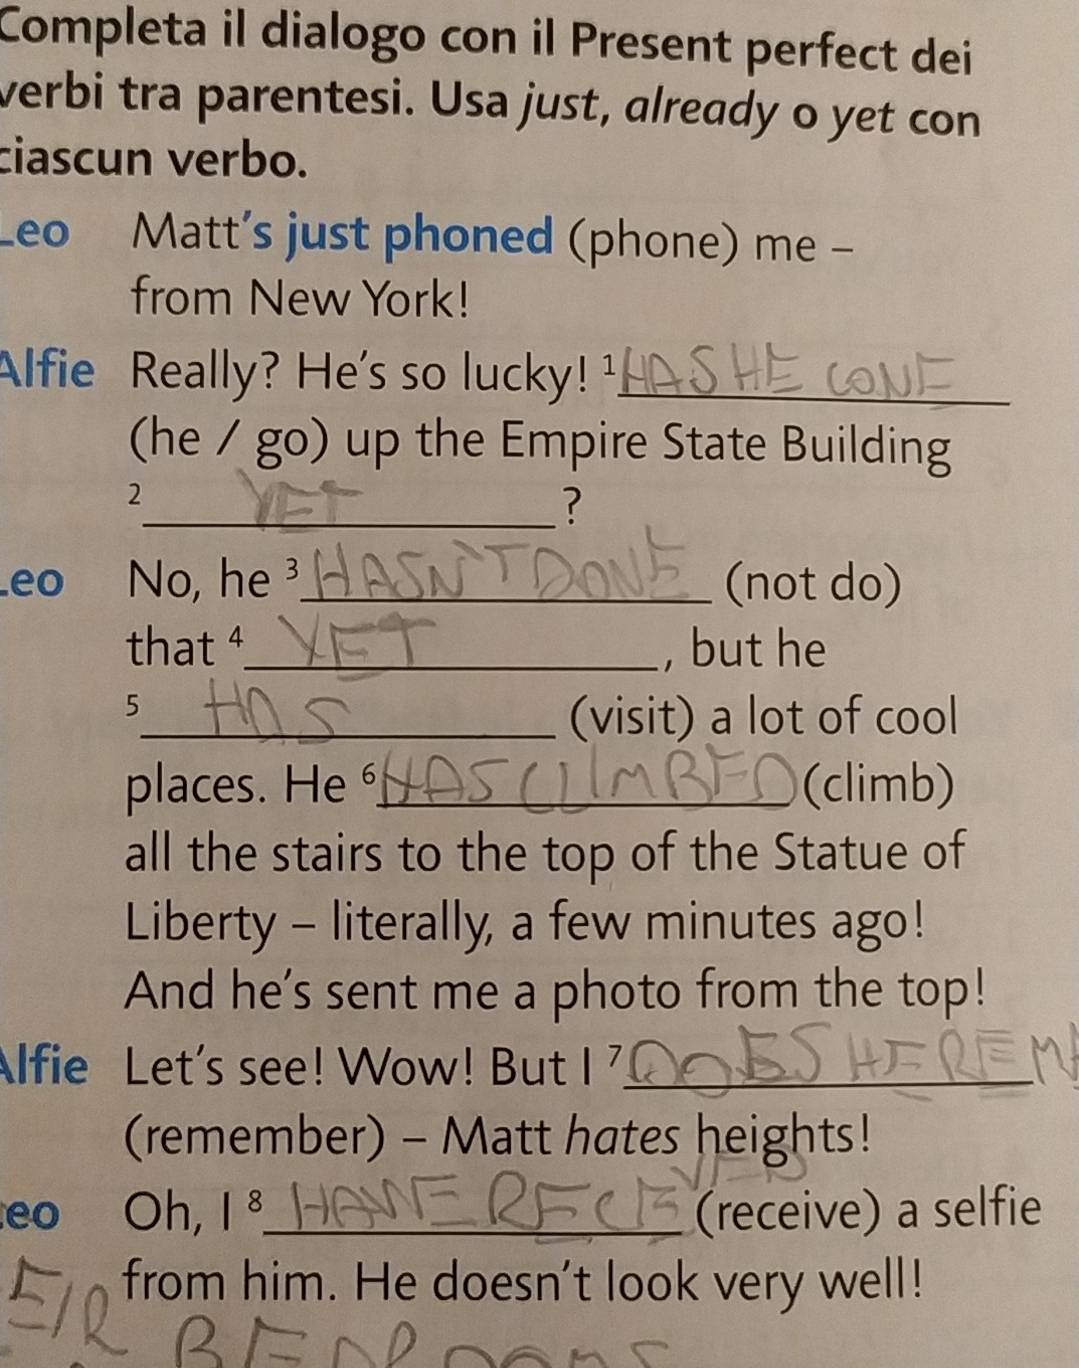 Completa il dialogo con il Present perfect dei
verbi tra parentesi. Usa just, already o yet con
ciascun verbo.
Leo Matt's just phoned (phone) me –
from New York!
Alfie Really? He's so lucky! ¹HAS HE GONE
(he / go) up the Empire State Building
² YET ?
Leo No, he ³ HASN'T DONE (not do)
that ⁴ YET , but he
⁵ HAS (visit) a lot of cool
places. He ⁶ HAS CLIMBED (climb)
all the stairs to the top of the Statue of
Liberty – literally, a few minutes ago!
And he's sent me a photo from the top!
Alfie Let's see! Wow! But I ⁷ DOES HE REM
(remember) – Matt hates heights!
Leo Oh, I ⁸ HAVE RECEIVED (receive) a selfie
from him. He doesn't look very well!